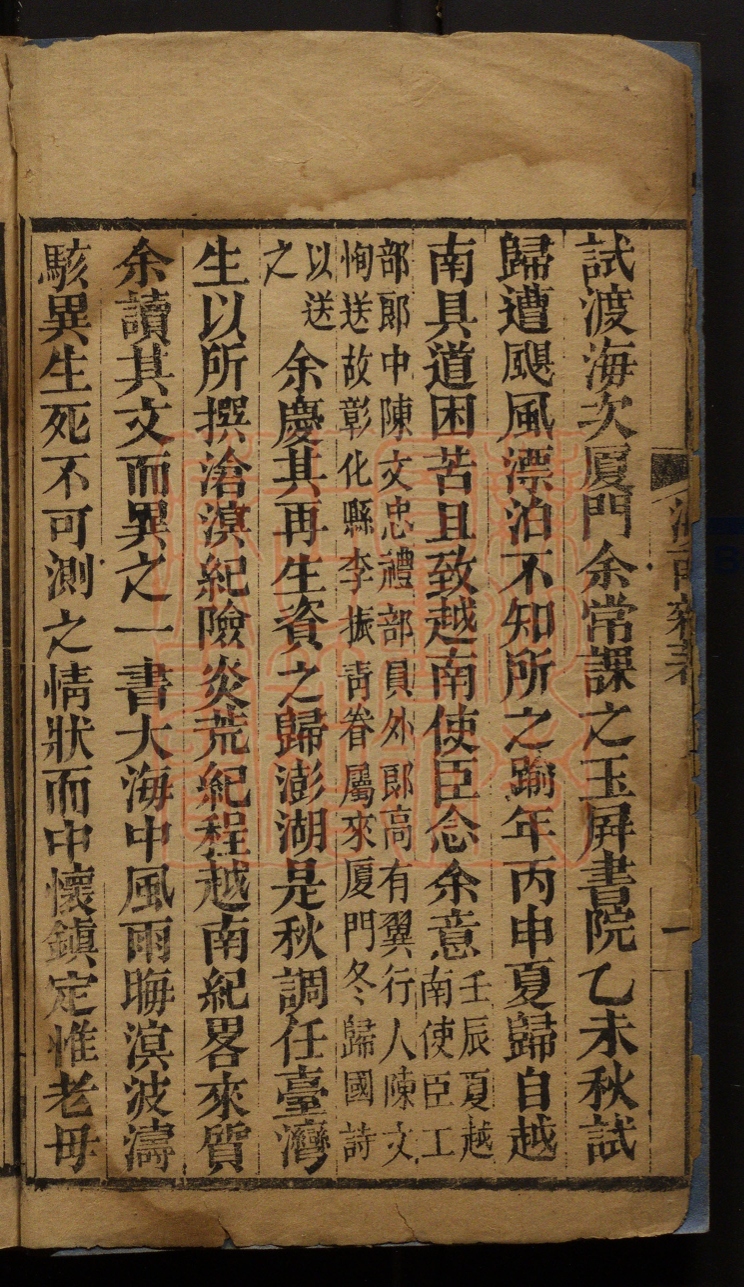 試渡海次厦門余常課之玉屏書院乙未秋試
歸遭颶風漂泊不知所之踰年丙申夏歸自越
南具道困苦且致越南使臣念余意壬辰夏越
南使臣工
部郎中陳文忠禮部員外郎高有翼行人陳文
恂送故彰化縣李振青眷屬來厦門冬歸國詩
以送
之
余慶其再生資之歸澎湖是秋調任臺灣
生以所撰滄溟紀險炎荒紀程越南紀畧來質
余讀其文而異之一書大海中風雨晦溟波濤
駭異生死不可測之情狀而中懷鎮定惟老母
海南雜著
一